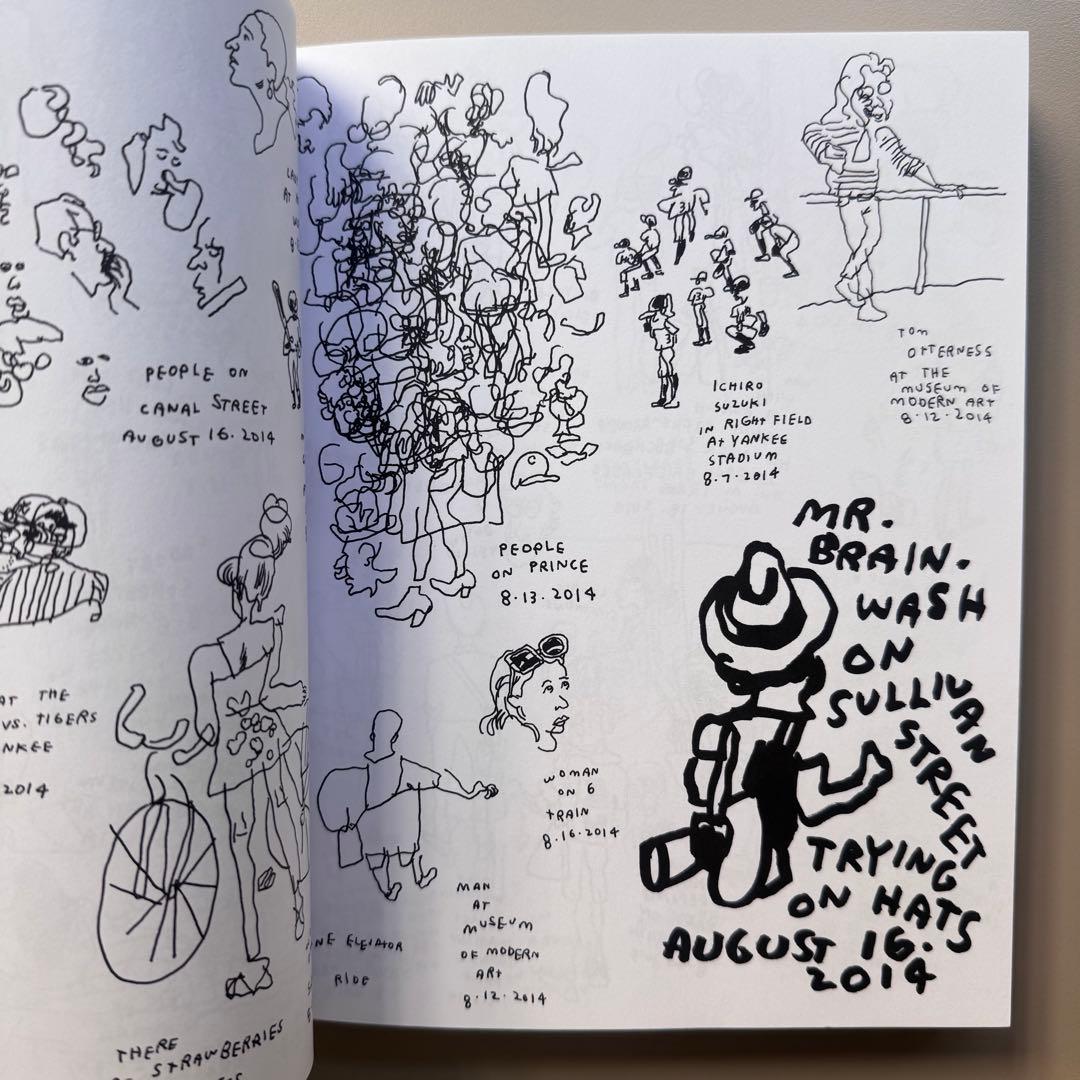 PEOPLE ON
CANAL STREET
AUGUST 16.2014
AT THE
VS. TIGERS
NKEE
2014
THERE
STRAWBERRIES
AT
NE ELEVATOR
RIDE
PEOPLE
ON PRINCE
8.13.2014
ICHIRO
SUZUKI
IN RIGHT FIELD
AT YANKEE
STADIUM
8.7.2014
TOM
OTTERNESS
AT THE
MUSEUM OF
MODERN ART
8.12.2014
WOMAN
ON 6
TRAIN
8.16.2014
MAN
AT
MUSEUM
OF MODERN
ART
8.12.2014
MR.
BRAIN.
WASH
ON
SULLIVAN
STREET
TRYING
ON HATS
AUGUST 16.
2014